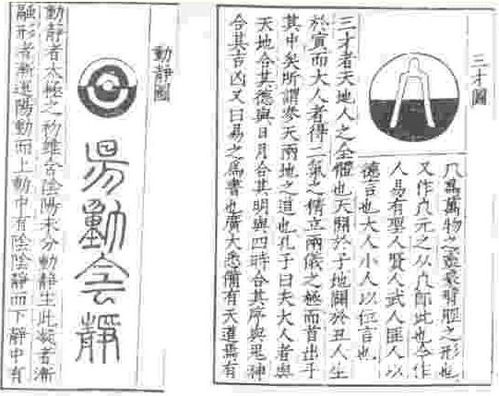 三才圖
爲萬物之靈象臂脛之形也
又作元之从即此也今作
人易有聖人賢人武人匪人以
德言也大人小人以位言也
三才者天地人之全體也天開於子地闢於丑人生
於寅而大人者得二氣之精立兩儀之極而首出乎
其中矣所謂參天兩地之道也孔子曰夫大人者與
天地合其德與日月合其明與四時合其序與鬼神
合其吉凶又曰易之爲書也廣大悉備有天道焉有
動靜圖
昜動侌靜
動靜者太極之初雖含陰陽未分動靜生此凝者漸
融形者漸運陽動而上動中有陰陰靜而下靜中有